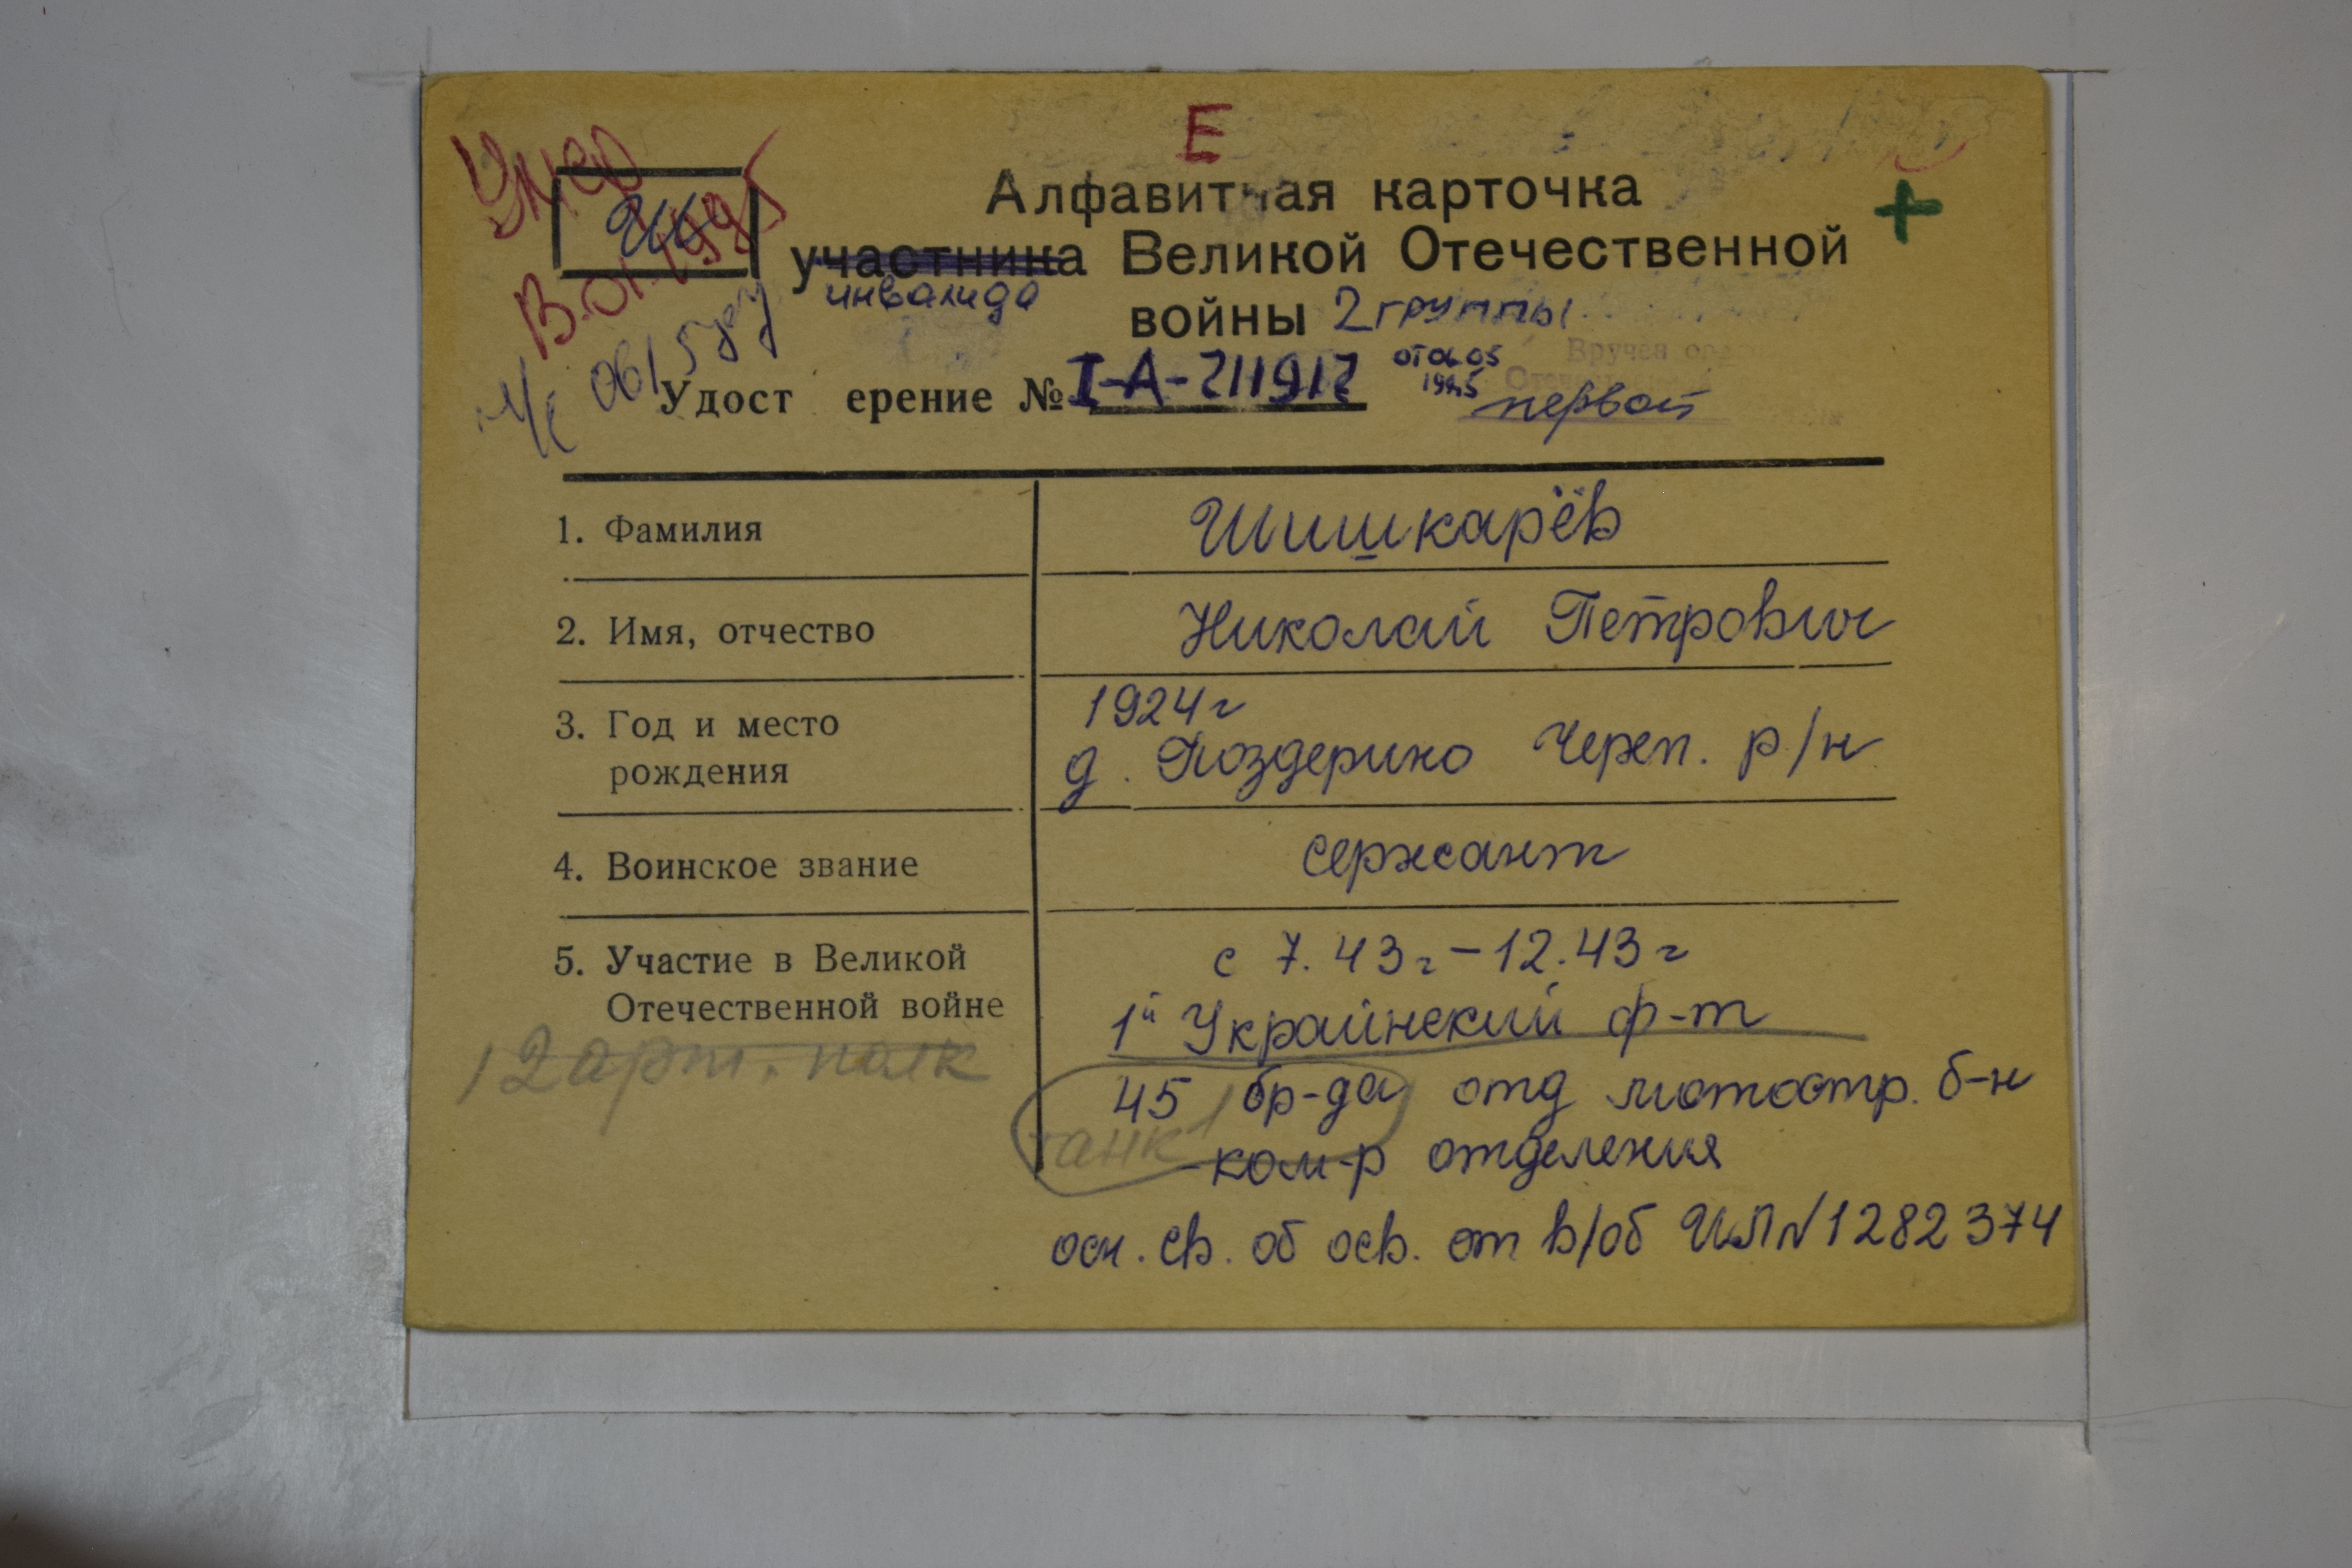 Е
Алфавитная карточка
участника Великой Отечественной
инвалида
войны 2 группы
Вручен
Удост ерение № I-А-711917 от 06.05
первой
1. Фамилия Шишкарёв
2. Имя, отчество Николай Петрович
3. Год и место рождения 1924г
д. Поздерино Череп. р/н
4. Воинское звание сержант
5. Участие в Великой Отечественной войне с 7.43г – 12.43г
1й Украинский ф-т
12 арт. полк
45 бр-да отд мотостр. б-н
танк
-ком-р отделения
осн. св. об осв. от в/об ИЛ№1282374